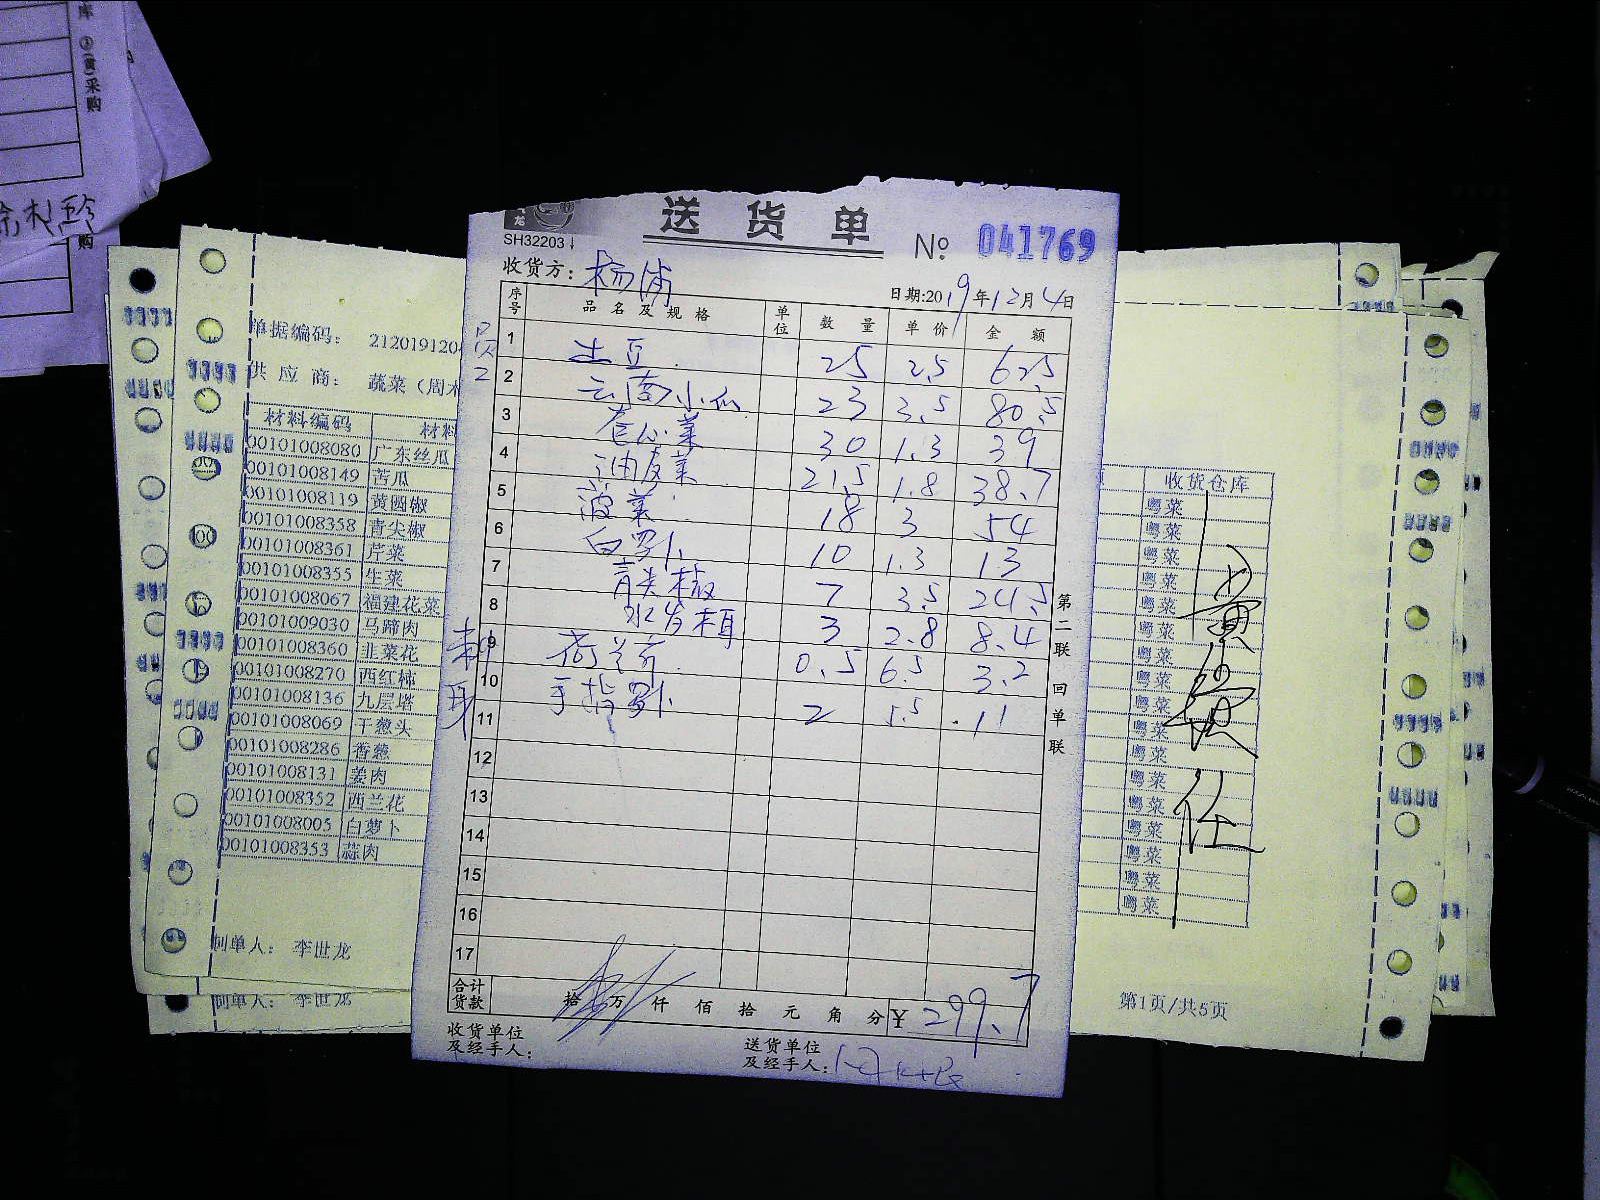 库 ③(黄)采购
购
送货单
SH32203
№ 041769
收货方：杨浦
日期:2019年12月4日
序号 品名及规格 单位 数量 单价 金额
1 土豆 25 2.5 62.5
2 云南小瓜 23 3.5 80.5
3 卷心菜 30 1.3 39
4 油麦菜 21.5 1.8 38.7
5 菠菜 18 3 54
6 白罗卜 10 1.3 13
7 青尖椒 7 3.5 24.5
8 水发木耳 3 2.8 8.4
9 荷兰芹 0.5 6.5 3.2
10 手指罗卜 2 5.5 11
11
12
13
14
15
16
17
合计货款 拾万仟佰拾元角分 ¥ 299.7
收货单位及经手人：
送货单位及经手人：
第二联 回单联
单据编码： 21201912
供应商： 蔬菜（周
材料编码 材料
00101008080 广东丝瓜
00101008149 苦瓜
00101008119 黄圆椒
00101008358 青尖椒
00101008361 芹菜
00101008355 生菜
00101008067 福建花菜
00101009030 马蹄肉
00101008360 韭菜花
00101008270 西红柿
00101008136 九层塔
00101008069 干葱头
00101008286 香葱
00101008131 姜肉
00101008352 西兰花
00101008005 白萝卜
00101008353 蒜肉
制单人： 李世龙
制单人： 李世龙
收货仓库
粤菜
粤菜
粤菜
粤菜
粤菜
粤菜
粤菜
粤菜
粤菜
粤菜
粤菜
粤菜
粤菜
粤菜
粤菜
粤菜
粤菜
第1页/共5页